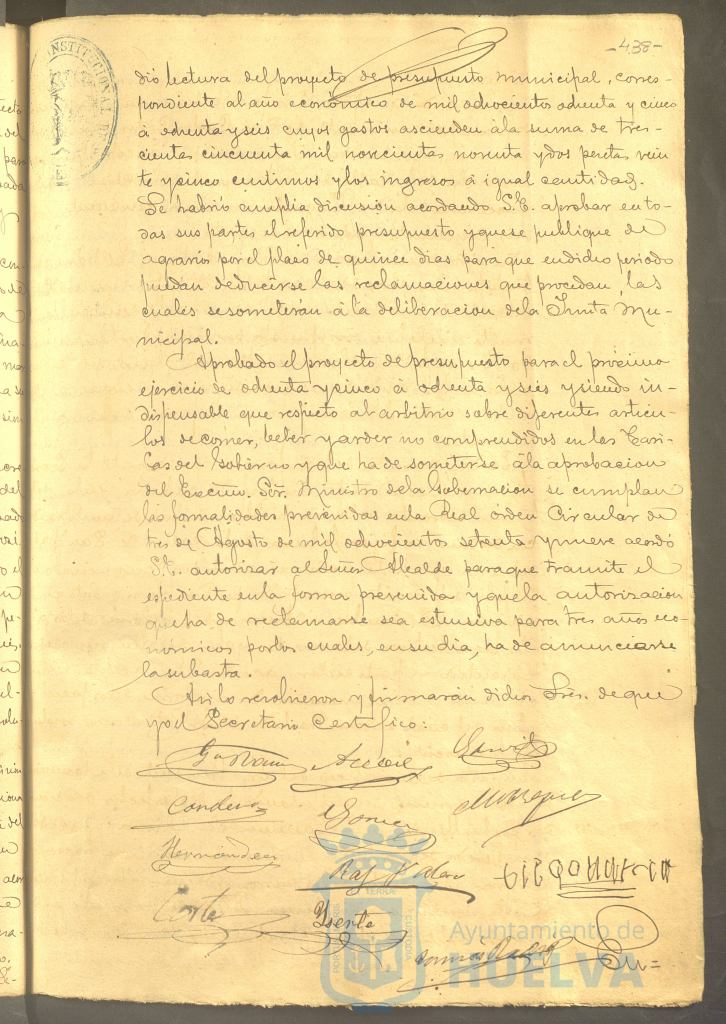 -438-
NSTITUCIONAL DE
dió lectura del proyecto de presupuesto municipal, corres-
pondiente al año económico de mil ochocientos ochenta y cinco
á ochenta y seis cuyos gastos ascienden á la suma de tres-
cientas cincuenta mil novecientas noventa y dos pesetas vein
te y cinco centimos y los ingresos á igual cantidad.
Se habrió amplia discusion acordando S.E. aprobar en to-
das sus partes el referido presupuesto y que se publique de
agrarios por el plazo de quince dias para que en dicho periodo
puedan deducirse las reclamaciones que procedan, las
cuales se someterán á la deliberacion de la Junta Mu-
nicipal.
Aprobado el proyecto de presupuesto para el próximo
ejercicio de ochenta y cinco á ochenta y seis y siendo in-
dispensable que respecto al arbitrio sobre diferentes articu-
los de comer, beber y arder no comprendidos en las Tari-
fas del Gobierno y que ha de someterse á la aprobacion
del Excmo. Señ. Ministro de la Gobernacion se cumplan
las formalidades prevenidas en la Real órden Circular de
tres de Agosto de mil ochocientos setenta y nueve acordó
S.E. autorizar al Señor Alcalde para que tramite el
espediente en la forma prevenida y que la autorizacion
que ha de reclamarse sea estensiva para tres años eco-
nómicos por los cuales, en su dia, ha de anunciarse
la subasta.
Asi lo resolvieron y firmarán dichos Sres. de que
yo el Secretario Certifico:
Garcia
Hernandez
Gomez
Corte
Yserte
TERRA
Ayuntamiento de
HUELVA